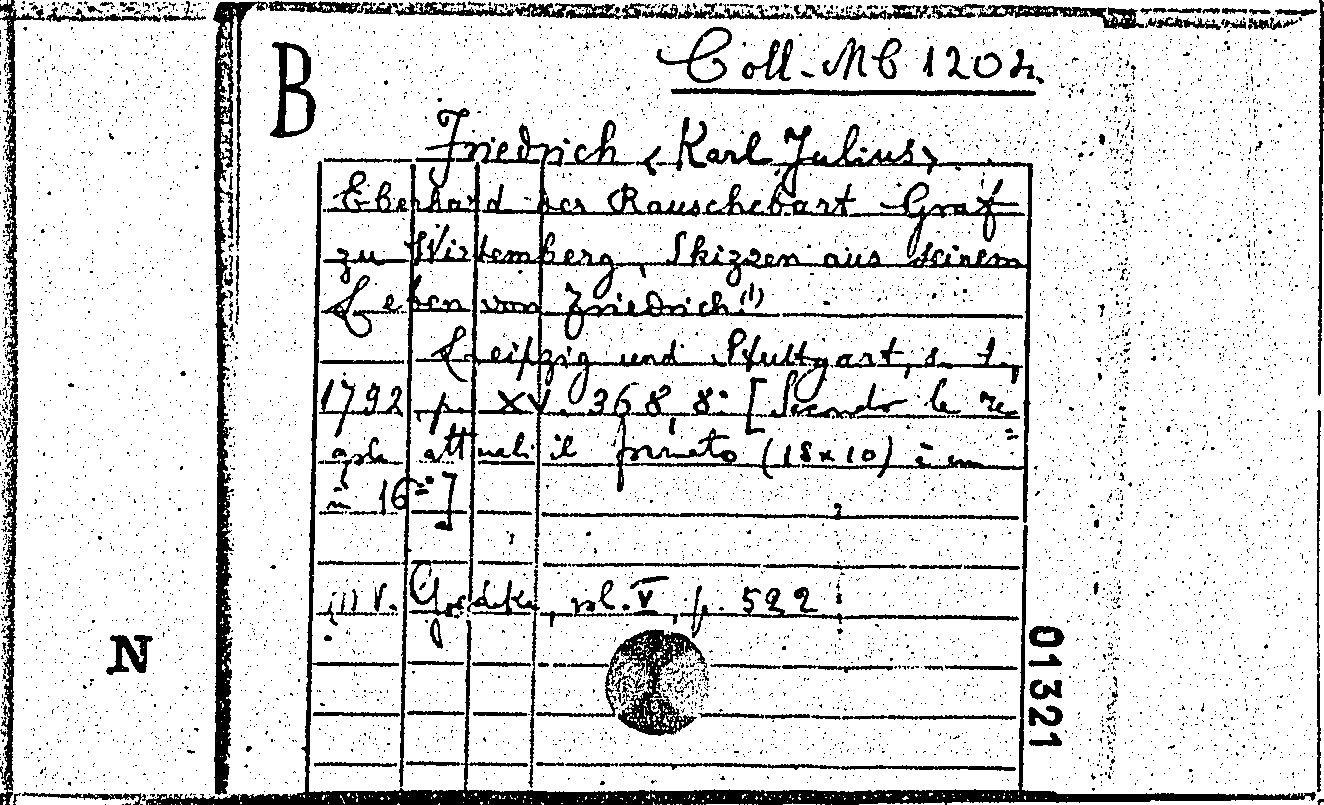 B
Coll. MB 1202.
Friedrich <Karl Julius>
Eberhard der Rauschebart Graf
zu Wirtemberg, Skizzen aus seinem
Leben von Friedrich.(1)
Leipzig und Stuttgart, s. t.,
1792, p. XV. 368, 8º [Secondo le re=
gole attuali il formato (18x10) è un
in 16º]
(1) V. Goedeke, vol. V, p. 522
N
01321